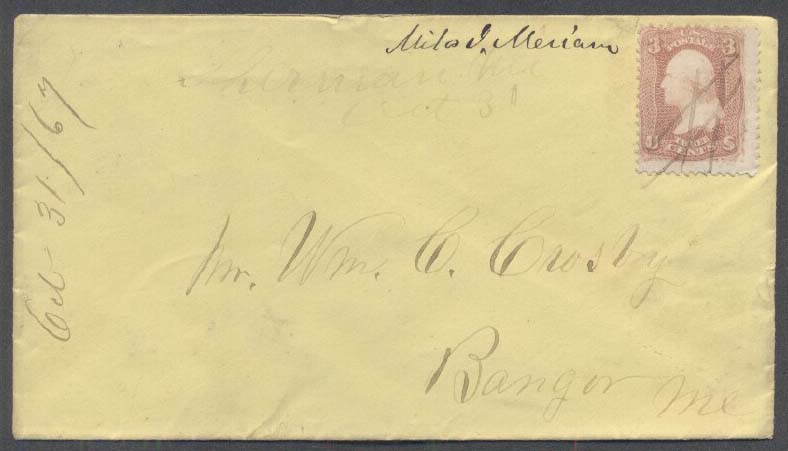 Milo J. Meriam
Sherman Me
Oct 31
Oct 31/67
3 U.S. 3
POSTAGE
U S
THREE
CENTS
Mr. Wm. C. Crosby
Bangor
Me